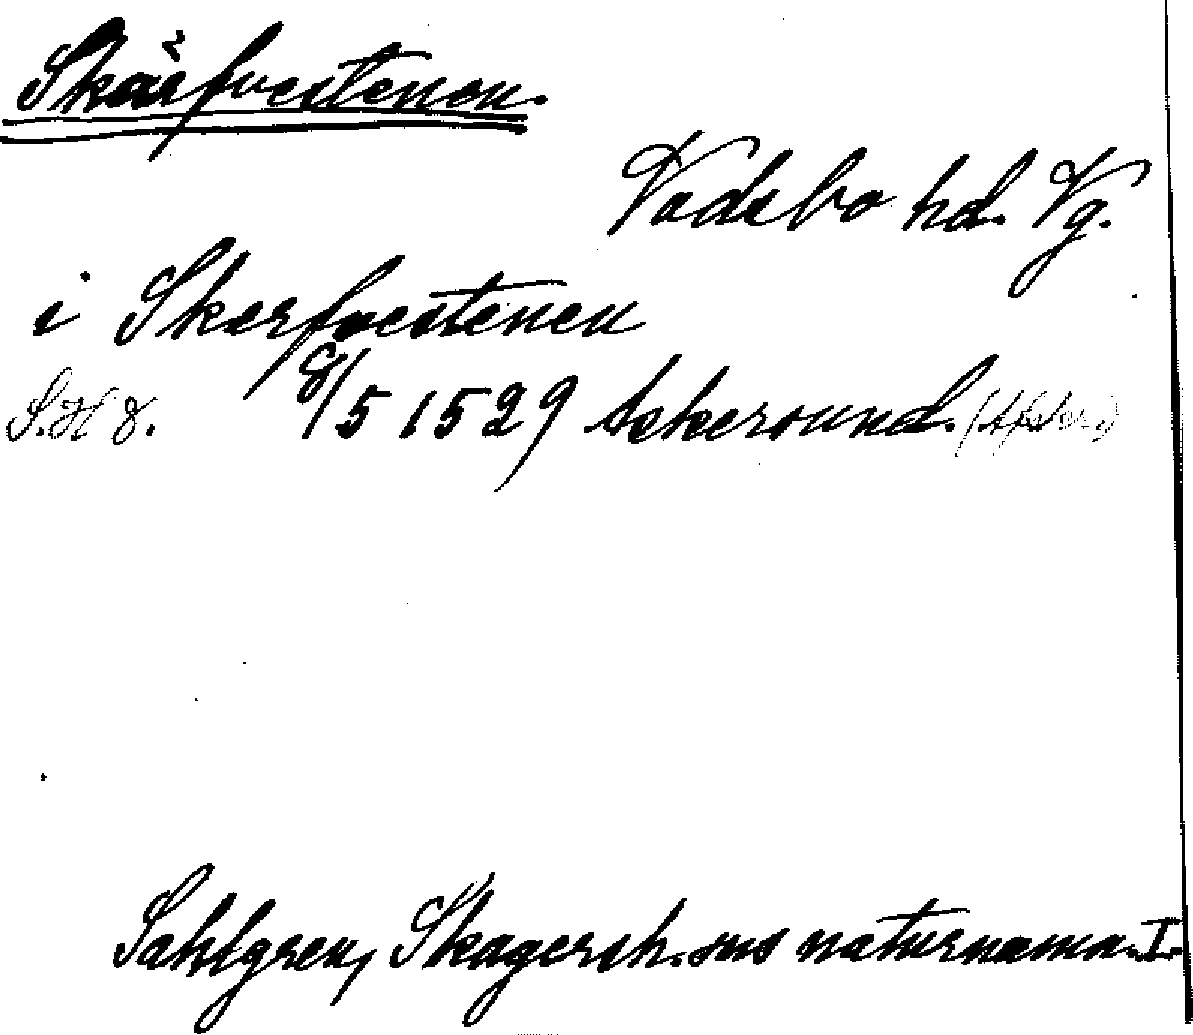 Skärfvestenen.
Vadsbo hd. Vg.
i Skerfvestenen
S.H 8. 8/5 1529 Askersund.
Sahlgren, Skagersh. sns naturnamn. I.